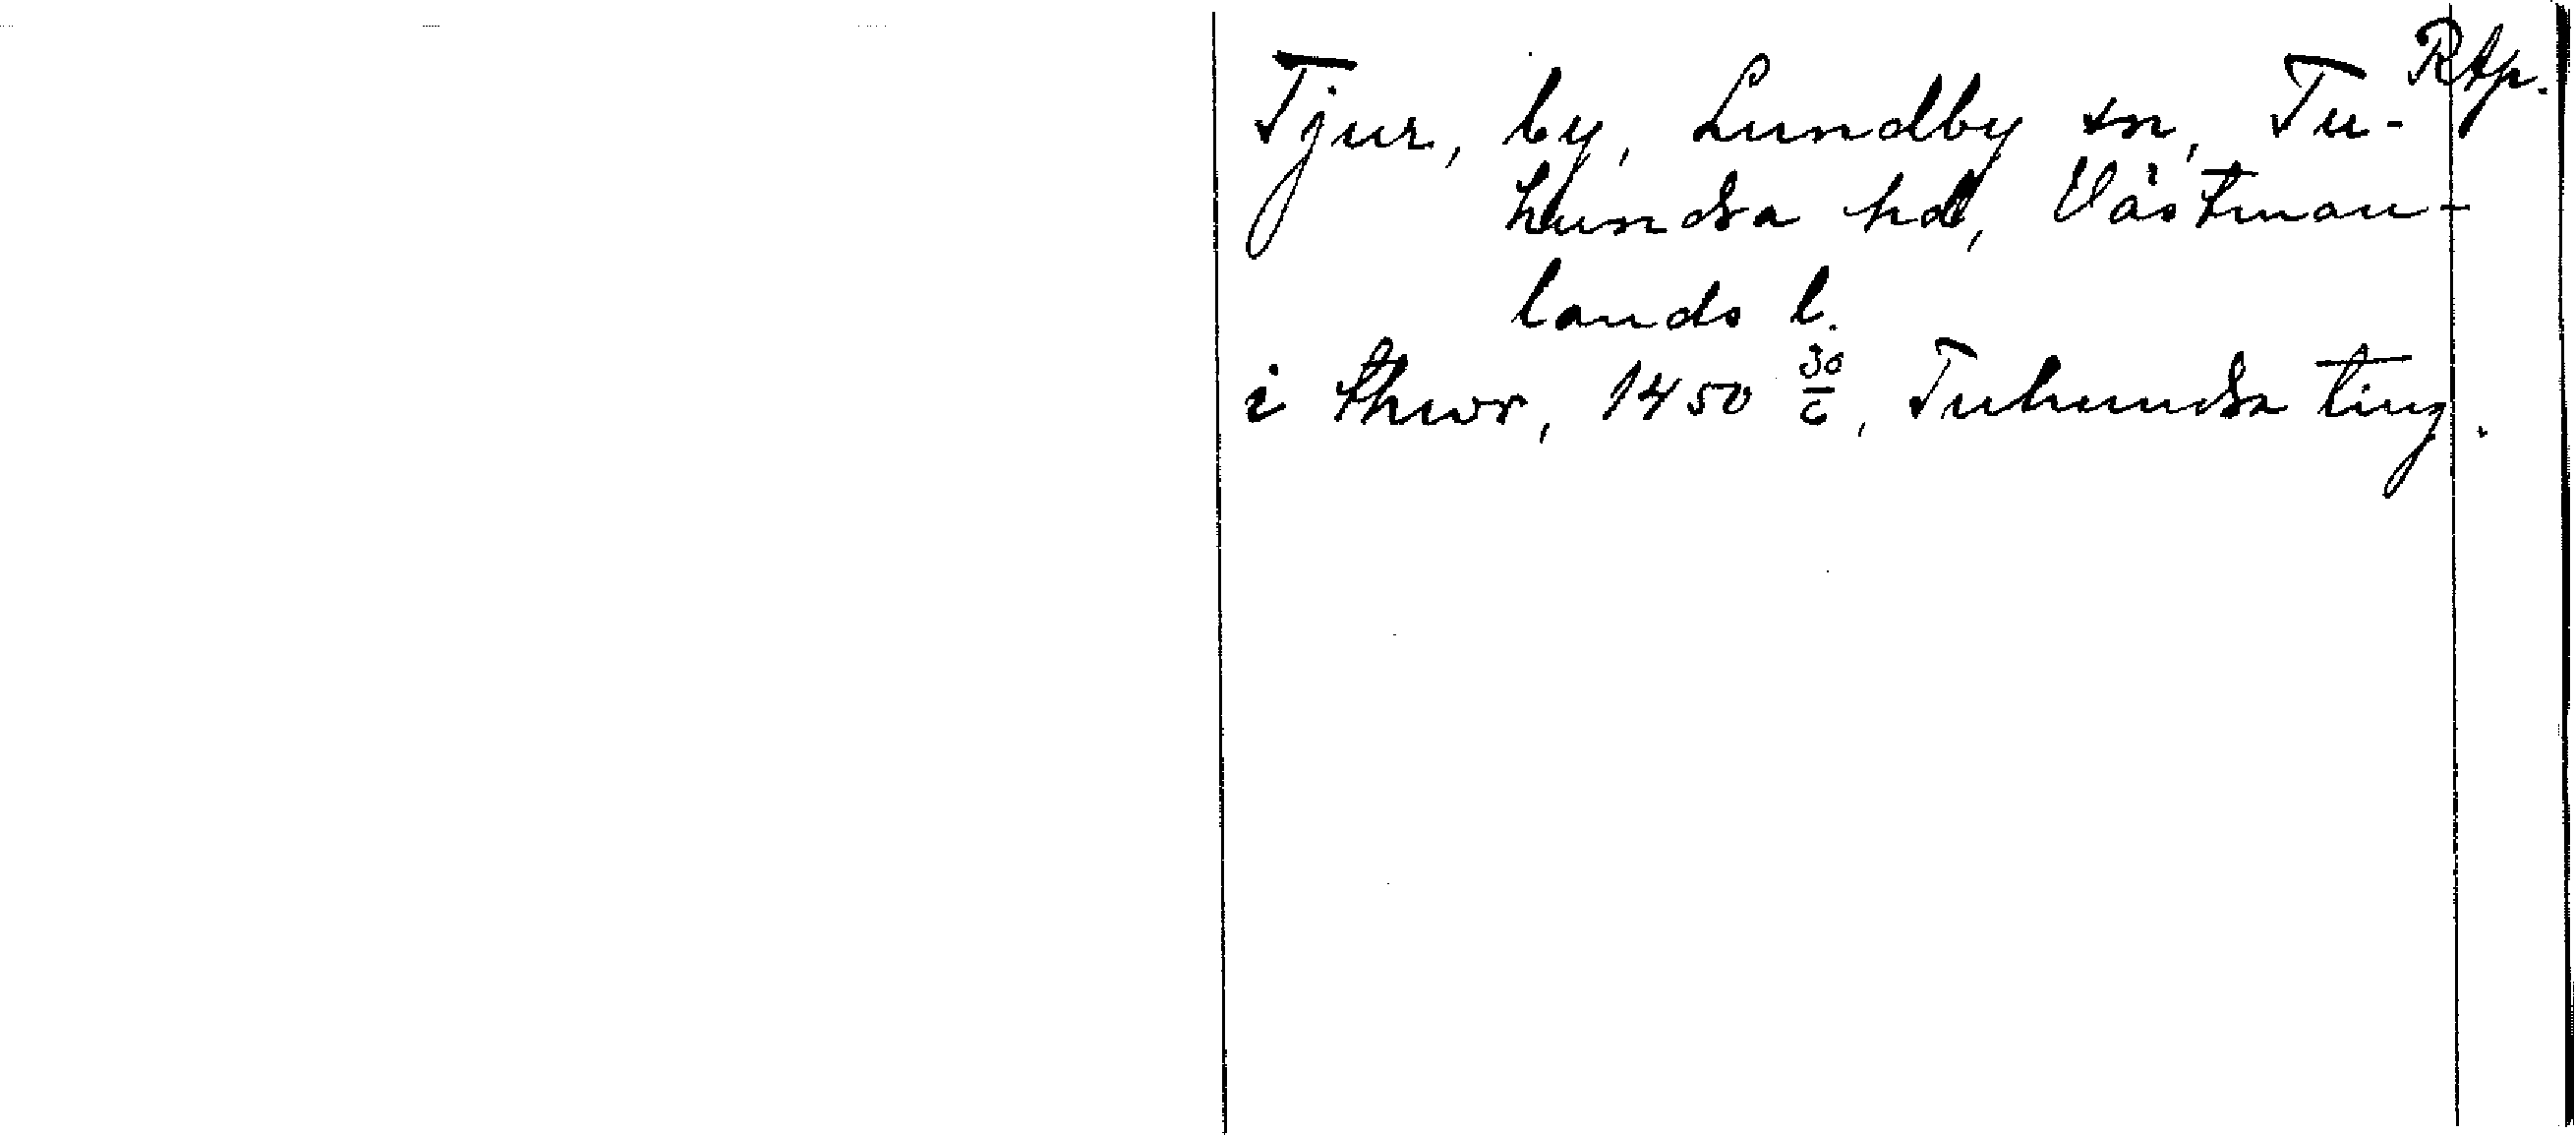 Rtp.
Tjur, by, Lundby sn, Tu-
hundra hd, Västman-
lands l.
i thwr, 1450 30/6, Tuhundra ting.